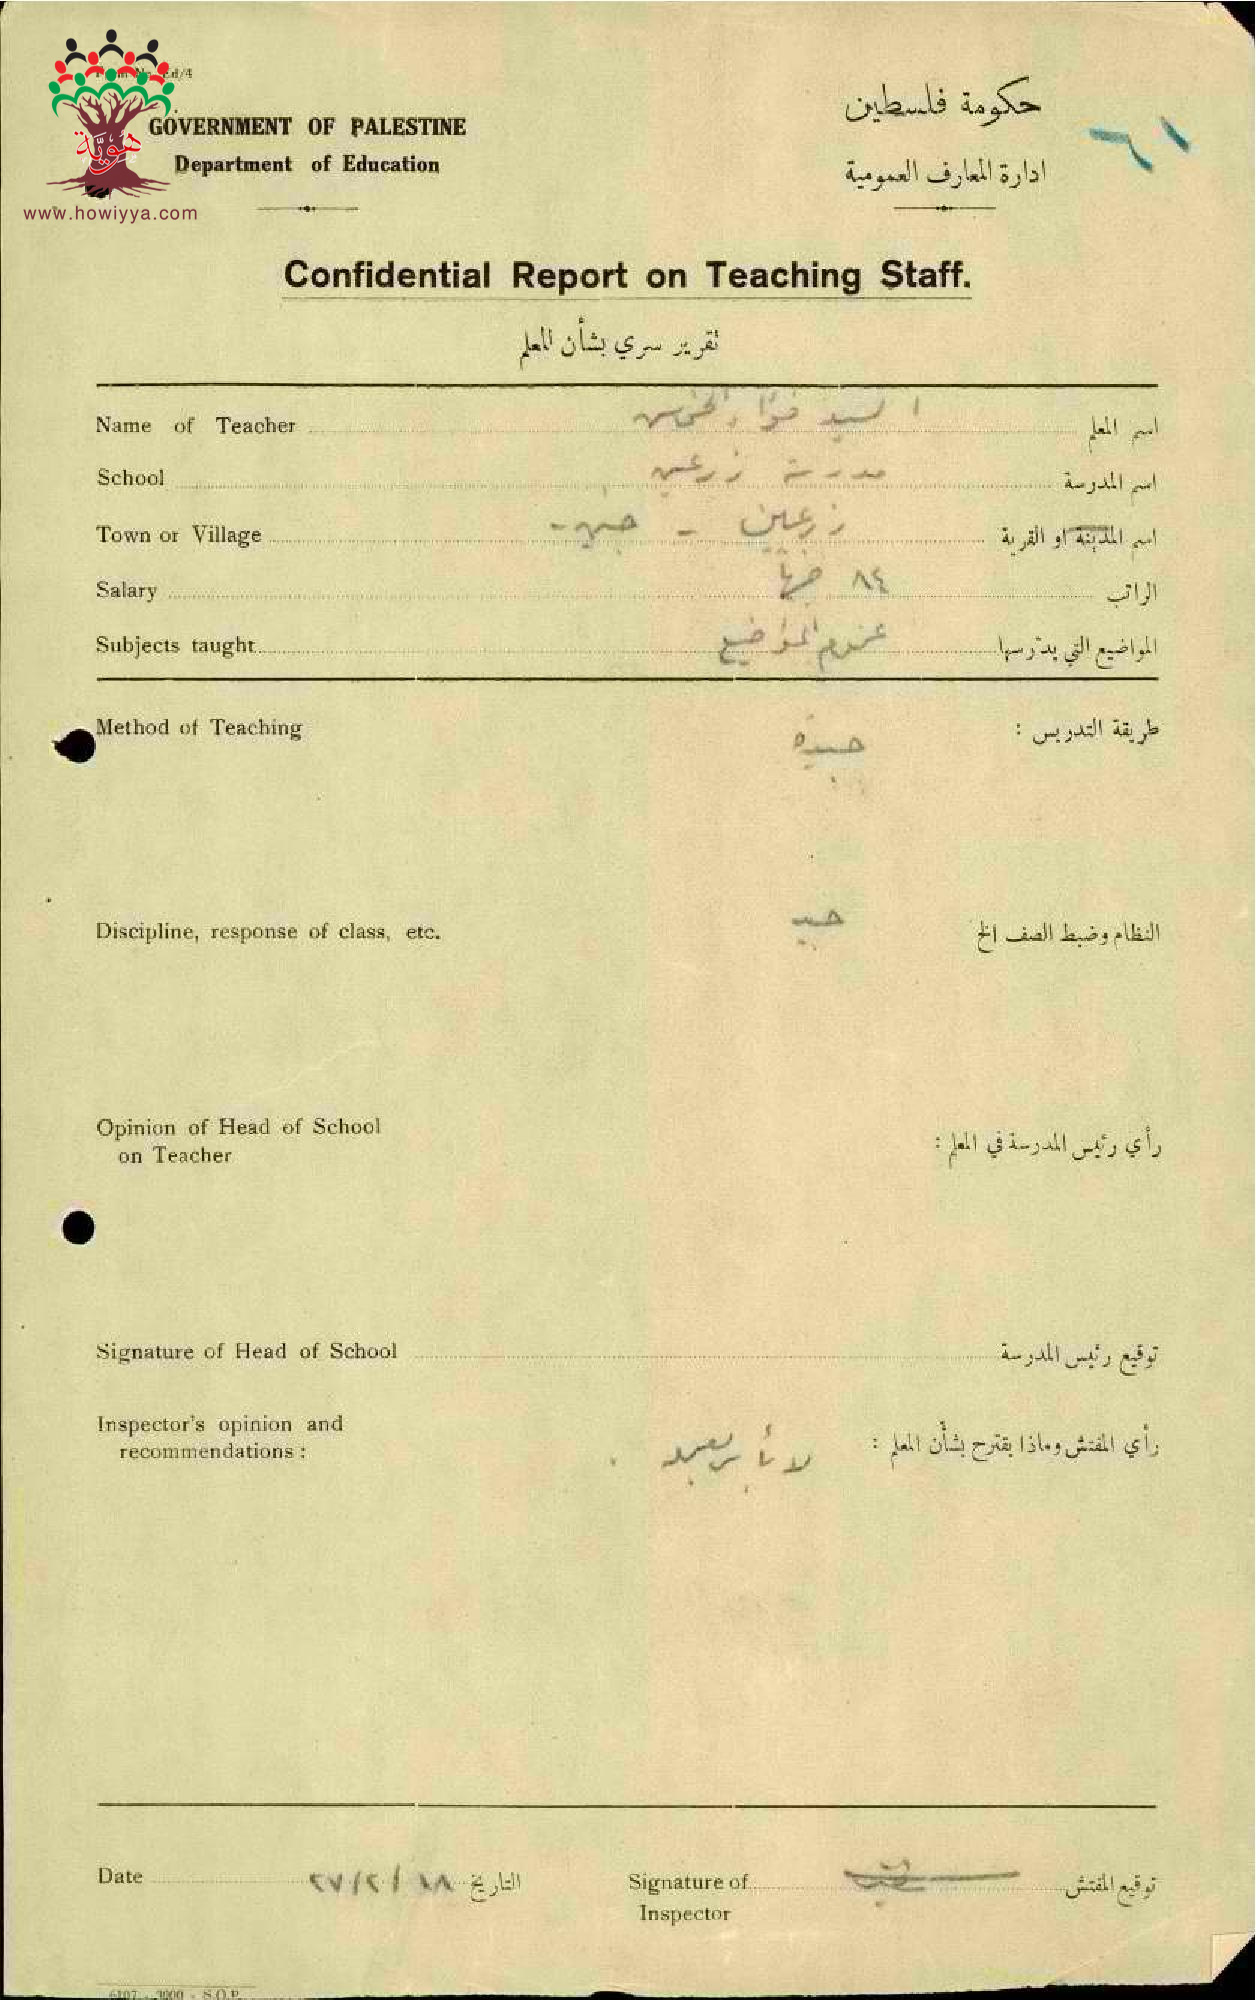 Ed/4
GOVERNMENT OF PALESTINE
Department of Education
حكومة فلسطين
ادارة المعارف العمومية
٦١
هويّة
www.howiyya.com
Confidential Report on Teaching Staff.
تقرير سري بشأن المعلم
Name of Teacher السيد فؤاد اسم المعلم
School مدرسة زرعين اسم المدرسة
Town or Village زرعين - جنين - اسم المدينة او القرية
Salary ٨٤ جنيها الراتب
Subjects taught عموم المواضيع المواضيع التي يدرسها
Method of Teaching جيدة طريقة التدريس :
Discipline, response of class, etc. جيد النظام وضبط الصف الخ
Opinion of Head of School
on Teacher
رأي رئيس المدرسة في المعلم :
Signature of Head of School توقيع رئيس المدرسة
Inspector's opinion and
recommendations :
رأي المفتش وماذا يقترح بشأن المعلم : لا بأس
Date التاريخ
Signature of
Inspector
توقيع المفتش
6107 - 3000 - S.O.P.